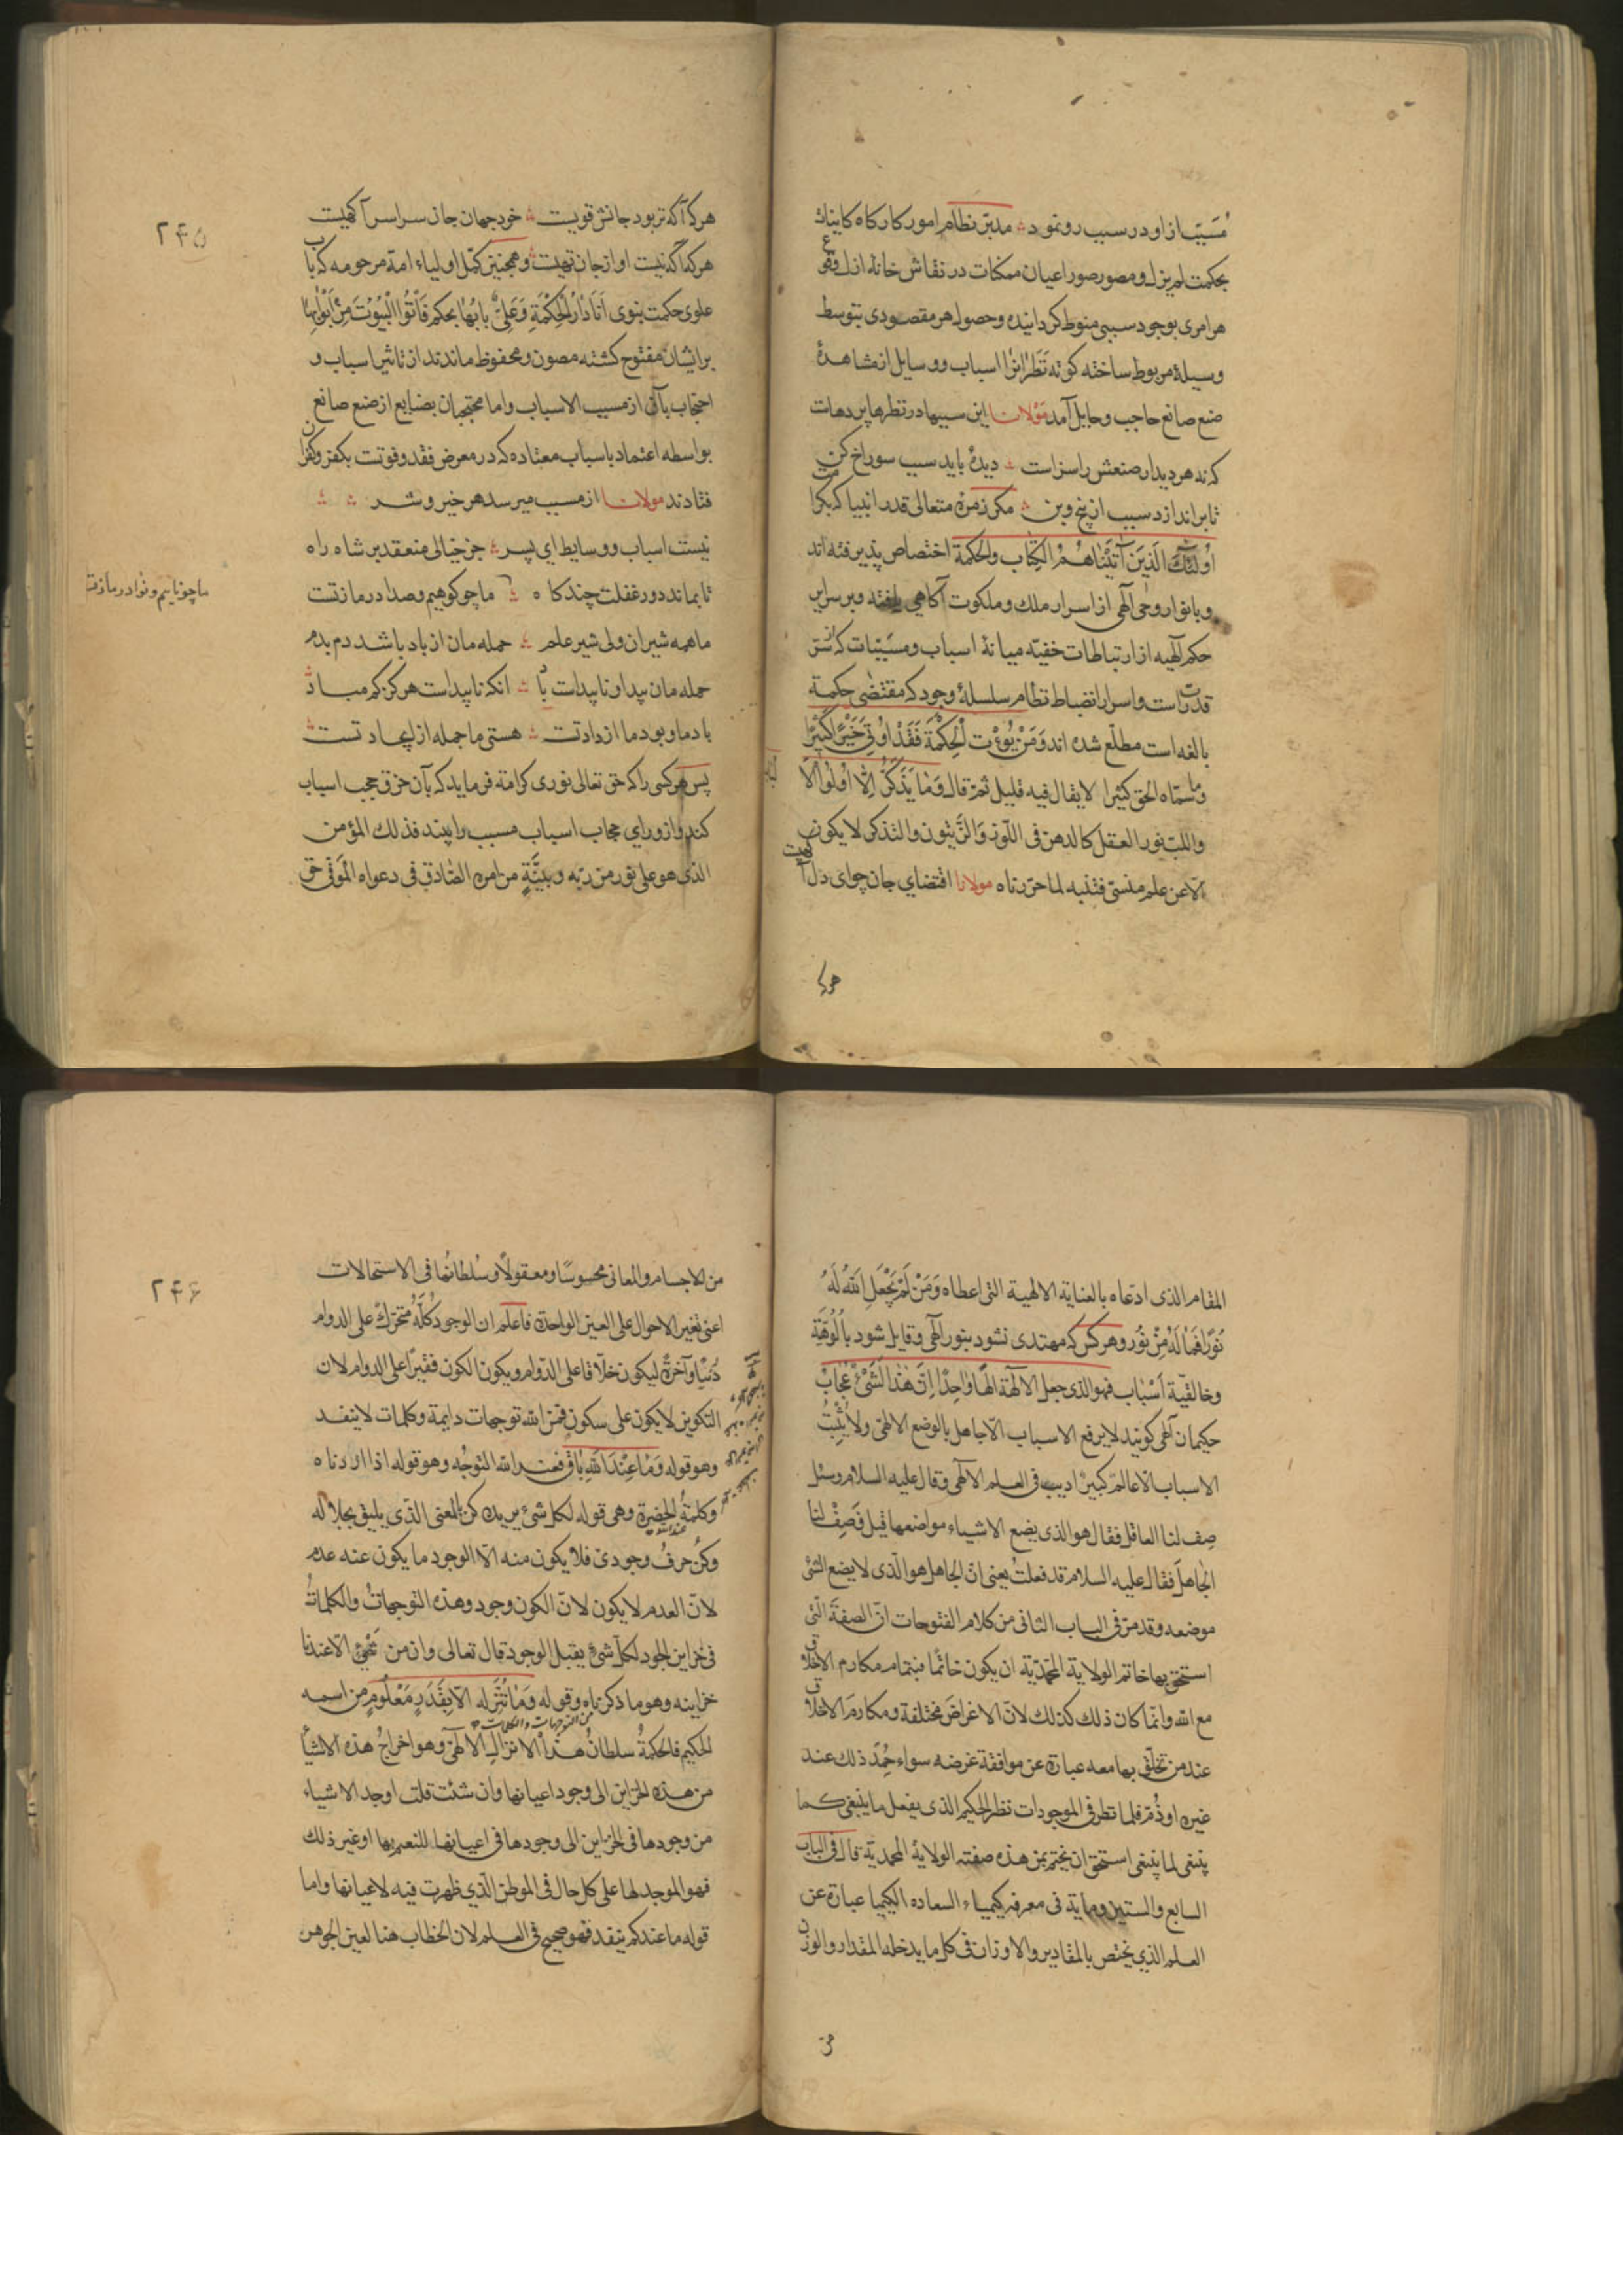 مُسَبّب از او در سبب رو نمود ؞ مدبّر نظام امور کارکاه کاینات
بحکمت لم یزل و مصور صور اعیان ممکنات در نقاش خانهٔ ازل وقوع
هر امری بوجود سببی منوط کردانیده و حصول هر مقصودی بتوسط
وسیلهٔ مربوط ساخته کوته نَظَرانرا اسباب و وسایل از مشاهدهٔ
صنع صانع حاجب و حایل آمد مَولانا این سببها در نظرها پردهاست
که نه هر دیدار صنعش را سزاست ؞ دیدهٔ باید سبب سوراخ کن
تا براندازد سبب از بیخ و بن ؞ مکر زمرهٔ متعالی قدر انبیا که بکرامت
اُولئِكَ الَّذِینَ آتَیْنَاهُمُ الْکِتَابَ وَالْحِکمَةَ اختصاص پذیرفته اند
و بانوار وحی آلهی از اسرار ملك و ملکوت آکاهی یافته و بر سرایر
حکم آلهیه از ارتباطات خفیّه میانهٔ اسباب و مسَبّبات که از سّر
قدرتست و اسرار انضباط نظام سلسلهٔ وجود که مقتضٰی حکمة
بالغه است مطلّع شده اند وَمَنْ یُؤْتَ الْحِکْمَةَ فَقَدْ اُوتِیَ خَیْرًا کَثِیْرًا
وما سمّاه الحق کثیرا لا یقال فیه قلیل ثمّ قال وَمَا یَذَّکَّرُ اِلّا اُولُوا الْاَلْبَاب
واللبّ نور العقل کالدهن فی اللّوز وَالزّیتُون والتذکر لا یکون
الّا عن علم منسیّ فتنبه لما حرّرناه مولانا اقتضای جان چو ای دل آکهیست
هرکه
۲۴۵
هر که آکه تر بود جانش قویست ؞ خود جهان جان سراسر آکهیست
هر که آکه نیست او از جان تهیست ؞ و همچنین کمّل اولیاء امة مرحومه که باب
علوی حکمت نبوی اَنَا دَارُ الْحِکْمَةِ وَعَلِیٌّ بَابُهَا بحکم فَأْتُوا الْبُیُوتَ مِنْ اَبْوَابِهَا
بر ایشان مفتوح کشته مصون و محفوظ ماندند از تاثیر اسباب و
احتجاب بآن از مسبب الاسباب و اما محتجبان بصنایع از صنع صانع
بواسطه اعتماد باسباب معتاده که در معرض فقد و فوتست بکفر و کفران
فتادند مولانا از مسبب میرسد هر خیر و شر ؞ ؞
نیست اسباب و وسایط ای پسر ؞ جز خیالی منعقد بر شاه راه
تا بماند دور غفلت چند کاه ؞ ما چو کوهیم و صدا در ما ز تست
ما چو ناییم و نوا در ما ز تست
ما همه شیران ولی شیر علم ؞ حمله مان از باد باشد دم بدم
حمله مان پیدا و ناپیداست باد ؞ انکه ناپیداست هرکز کم مباد
باد ما و بود ما از داد تست ؞ هستی ما جمله از ایجاد تست
پس هر کسی را که حق تعالی نوری کرامة فرماید که بآن خرق حجب اسباب
کند و از ورای حجاب اسباب مسبب را بیند فذلك المؤمن
الذی هو علی نور من ربّه وبیّنَةٍ من امره الصّادق فی دعواه الموفی حق
المقام الذی ادّعاه بالعنایة الالهیة التی اعطاه وَمَنْ لَمْ یَجْعَلِ اللهُ لَهُ
نُورًا فَمَا لَهُ مِنْ نُور و هر کس که مهتدی نشود بنور آلهی و قایل شود بالُوهَیّة
و خالقیّة اَسْبَاب فهو الذی جعل الالهة الهًا وَاحِدًا اِنَّ هٰذَا لَشَیْءٌ عُجَابٌ
حکیمان آلهی کویند لا یرفع الاسباب الّا جاهل بالوضع الالهیّ ولا یُثْبِتُ
الاسباب الّا عالمٌ کبیرٌ ادیب فی العلم الالهی وقال علیه السلام وسئل
صِف لنا العاقل فقال هو الذی یضع الاشیاء مواضعها قیل فَصِفْ لنا
الجاهلَ فقال علیه السلام قد فعلتُ یعنی انّ الجاهل هو الّذی لا یضع الشّی
موضعه وقد مرّ فی الباب الثانی من کلام الفتوحات انّ الصفة الّتی
استحق بها خاتم الولایة المحمّدیّة ان یکون خاتمًا فبتمام مکارم الاخلاق
مع الله وانّما کان ذلك کذلك لانّ الاغراضَ مختلفة ومکارم الاخلاق
عند من تخلّق بها معه عبارة عن موافقة غرضه سواء حُمِدَ ذلك عند
غیره او ذُمّ فلما نظر فی الموجودات نظر الحکیم الذی یفعل ما ینبغی کما
ینبغی لما ینبغی استحق ان یختم بمن هذه صفته الولایة المحمدیّة قال فی الباب
السابع والستین ومایة فی معرفة کیمیاء السعاده الکیمیا عبارة عن
العلم الذی یختص بالمقادیر والاوزان فی کل ما یدخله المقدار والوزن
من
۲۴۶
من الاجسام والمعانی محسوسًا ومعقولًا وسُلطانُها فی الاستحالات
اعنی تغیّر الاحوال علی العین الواحدة فاعلم ان الوجود کلّه مُتحرّكٌ علی الدوام
دُنیا وآخرةً لیکون خلّاقا علی الدّوام ویکون الکون فقیرًا علی الدوام لان
التکوین لا یکون علی سکون فمن الله توجهات دایمة وکلمات لا ینفد
وهو قوله وَمَا عِنْدَ اللهِ بَاقٍ فعند الله التوجّه وهو قوله اذا اردناه
وکلمةُ الحضرة وهی قوله لکل شیء یرید کن بالمعنی الّذی یلیق بجلاله
وکن حرفُ وجودیّ فلا یکون منه الّا الوجود ما یکون عنه عدم
لانّ العدم لا یکون لانّ الکون وجود وهذه التّوجهاتُ والکلماتُ
فی خزاین الجود لکل شیء یقبل الوجود قال تعالی وان من شیءٍ الّا عندنا
خزاینه وهو ما ذکرناه وقوله وَمَا نُنَزّله الّا بِقَدَرٍ مَعْلُومٍ من اسمه
من التوجهات والکلمات
الحکیم فالحکمةُ سلطانُ هذا الانزال الالهیّ وهو اخراجُ هذه الاشیاء
من هذه الخزاین الی وجود اعیانها وان شئت قلت اوجد الاشیاء
من وجودها فی الخزاین الی وجودها فی اعیانها للنعیم بها او غیر ذلك
فهو الموجد لها علی کل حال فی الموطن الّذی ظهرت فیه لاعیانها واما
قوله ما عندکم ینفد فهو صحیح فی العلم لان الخطاب هنا لعین الجوهر